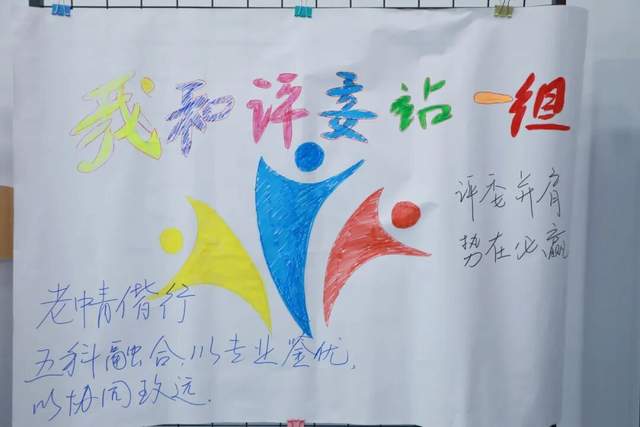 我和评委站一组
评委并肩
势在必赢
老中青偕行
五科融合,以专业鉴优,
以协同致远.